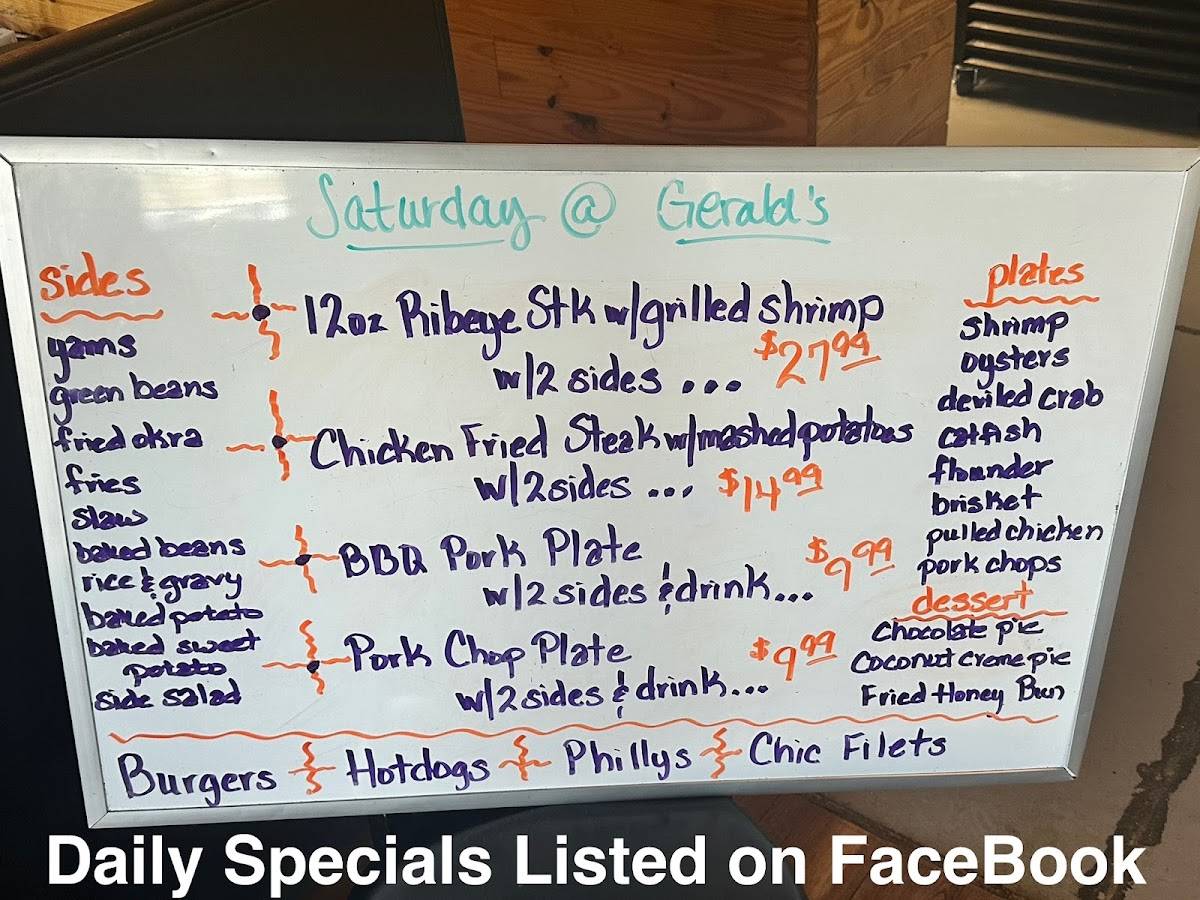 Saturday @ Gerald's
sides
yams
green beans
fried okra
fries
slaw
baked beans
rice & gravy
baked potato
baked sweet
potato
side salad
12oz Ribeye Stk w/grilled shrimp
w/2 sides ... $27.99
Chicken Fried Steak w/mashed potatoes
w/2 sides ... $14.99
BBQ Pork Plate
w/2 sides & drink... $9.99
Pork Chop Plate
w/2 sides & drink... $9.99
plates
shrimp
oysters
deviled crab
catfish
flounder
brisket
pulled chicken
pork chops
dessert
Chocolate pie
Coconut creme pie
Fried Honey Bun
Burgers Hotdogs Phillys Chic Filets
Daily Specials Listed on FaceBook